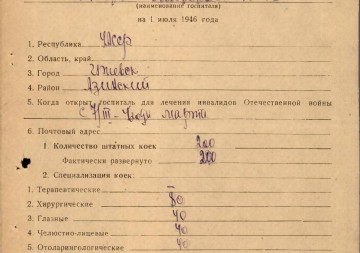 (наименование госпиталя)
на 1 июля 1946 года
1. Республика УАССР
2. Область, край
3. Город Ижевск
4. Район Азинский
5. Когда открыт госпиталь для лечения инвалидов Отечественной войны
марта
6. Почтовый адрес
1. Количество штатных коек 200
Фактически развернуто 200
2. Специализация коек:
1. Терапевтические —
2. Хирургические 80
3. Глазные 40
4. Челюстно-лицевые 40
5. Отоларингологические 40